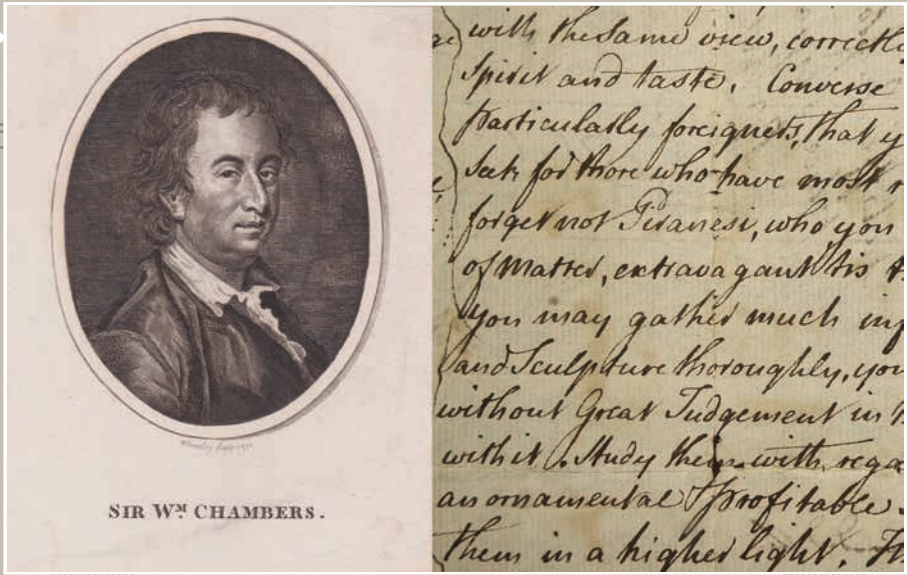 SIR Wᴹ CHAMBERS.
with the same view, correctly
Spirit and taste. Converse
particularly foreigners, that y
Seek for those who have most r
forget not Piranesi, who you
of Matter, extravagant his
you may gather much inf
and Sculpture thoroughly, you
without Great Judgement in
with it. Study them with rega
an ornamental & profitable
them in a higher light.